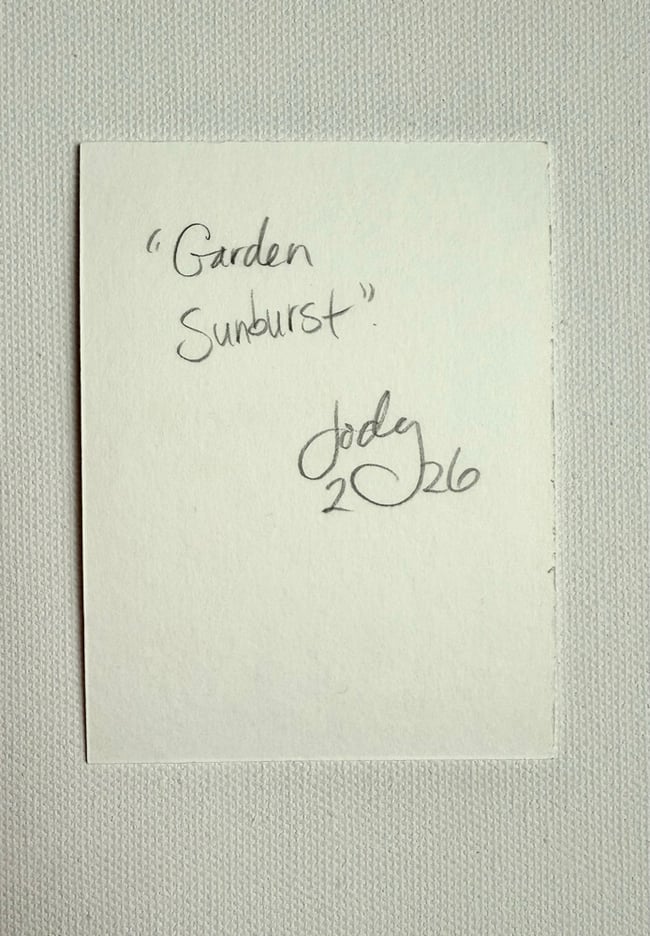 "Garden
Sunburst".
Jody
2026